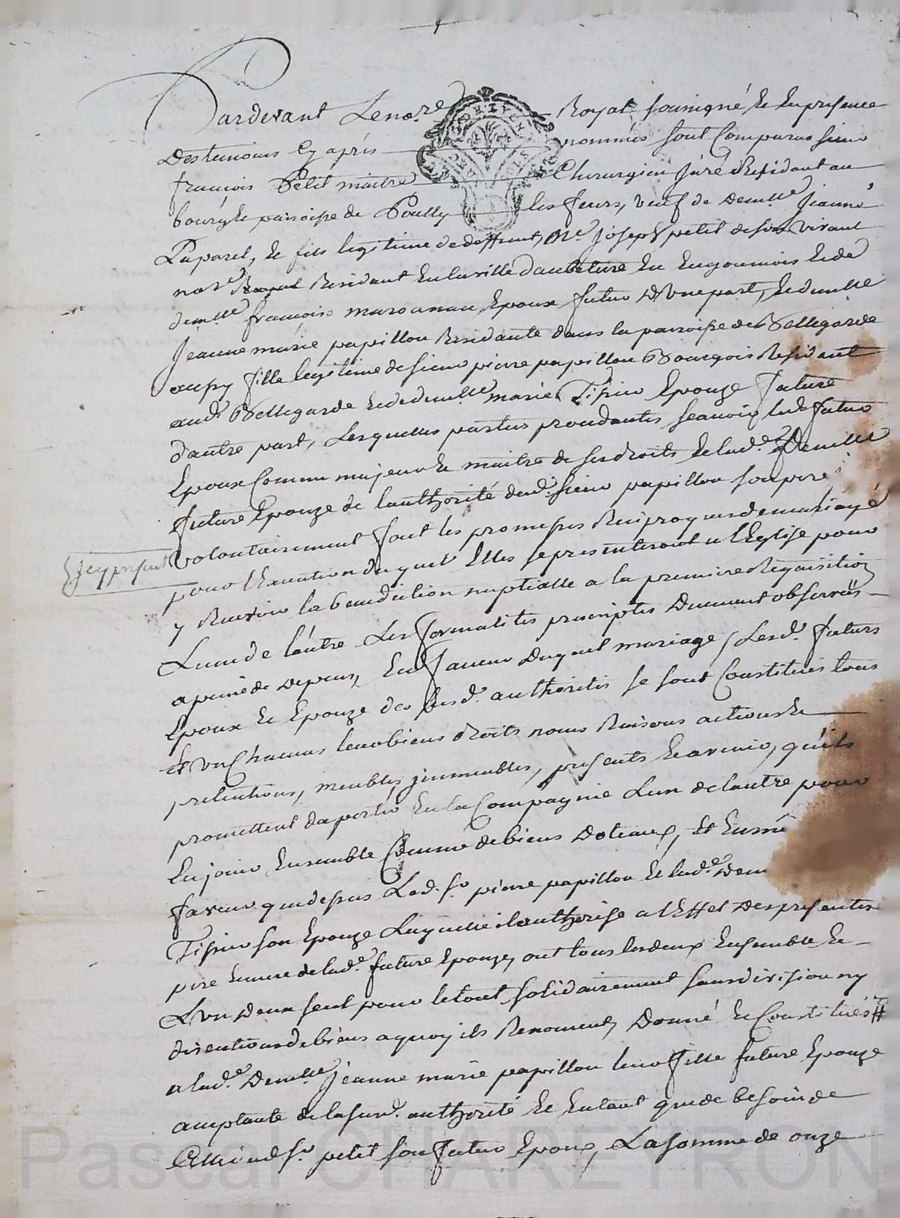 Pardevant Le no.re Royal soussigné Et En presence
Des temoins Cy après nommés sont Comparus sieur
françois Petit maitre Chirurgien juré Residant au
bourg Et paroisse de Pouilly les feurs, veuf de Demlle Jeanne
Laparet, Et fils legitime de deffunt, Me Joseph petit de son vivant
not.re Royal Residant En la ville daubeterre En Engoumois Et de
demlle françoise marouneau, Epoux futur D'vne part, Et demlle
Jeanne marie papillon Residante dans la paroisse de Bellegarde
aussy fille legitime de sieur pierre papillon Bourgeois Residant
aud. Bellegarde Et de demlle marie Tissier Epouze future
d'autre part, Lesquelles parties procedantes sçavoir led. futur
Epoux Comme majeur Et maitre de ses droits Et lad.e Demlle
future Epouze de l'authorité dud. sieur papillon son pere
Icy present
volontairement font les promesses Reciproques de mariage
pour l'Execution duquel Elles se presenteront a l'Eglise pour
y Recevoir la benediction nuptialle a la premiere Requisition
Lun de l'autre Les formalités prescriptes Duement observées
a peine de Depens, En faveur Duquel mariage Lesd. futurs
Epoux Et Epouze des susd. authorités se sont Constitués tous
Et vn Chacun leurs biens droits noms Raisons actions Et
pretentions, meubles, jmmeubles, presents Et avenir, qu'ils
promettent daporter En la Compagnie Lun de lautre pour
En jouir Ensemble Comme de biens Doteaux, Et En
faveur que dessus Led. sr. pierre papillon Et lad.e Dem
Tissier son Epouze Laquelle il authorise a l'Effet Des presentes
pere Et mere de lad.e future Epouze, ont tous les deux Ensemble Et
L'vn Deux seul pour le tout solidairement sans division ny
discution de biens a quoy ils Renoncent, Donné Et Constitués
a lad.e Demlle Jeanne marie papillon leur fille future Epouze
acceptante de la susd. authorité Et En tant que de besoin de
Celle dud. sr. petit son futur Epoux, La somme de onze
Pascal CHAREYRON